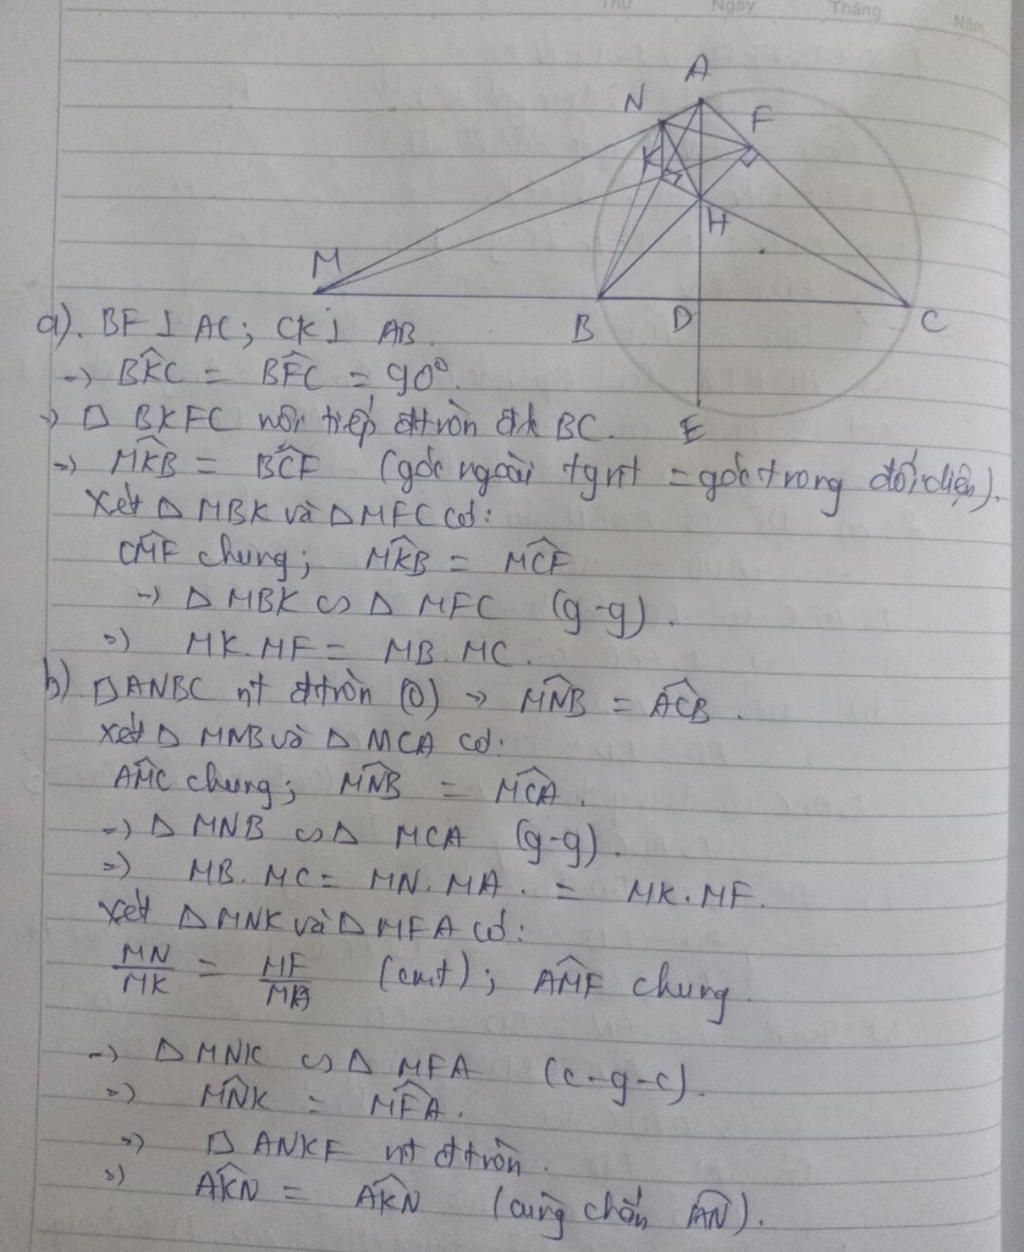 Thứ Ngày Tháng Năm
A
N
F
K
H
M
B
D
C
E
a). BF ⊥ AC; CK ⊥ AB.
→ \widehat{BKC} = \widehat{BFC} = 90°.
=> □ BKFC nội tiếp đtròn đk BC.
=> \widehat{MKB} = \widehat{BCF} (góc ngoài tgnt = góc trong đối diện).
Xét Δ MBK và Δ MFC có:
\widehat{CMF} chung; \widehat{MKB} = \widehat{MCF}
→ Δ MBK ∽ Δ MFC (g-g).
=> MK.MF = MB.MC.
b) □ ANBC nt đtròn (O) → \widehat{MNB} = \widehat{ACB}.
Xét Δ MNB và Δ MCA có:
\widehat{AMC} chung; \widehat{MNB} = \widehat{MCA}.
→ Δ MNB ∽ Δ MCA (g-g).
=> MB.MC = MN.MA. = MK.MF.
Xét Δ MNK và Δ MFA có:
\frac{MN}{MK} = \frac{MF}{MA} (cmt); \widehat{AMF} chung.
→ Δ MNK ∽ Δ MFA (c-g-c).
=> \widehat{MNK} = \widehat{MFA}.
=> □ ANKF nt đtròn.
=> \widehat{AKN} = \widehat{AKN} (cùng chắn \widehat{AN}).